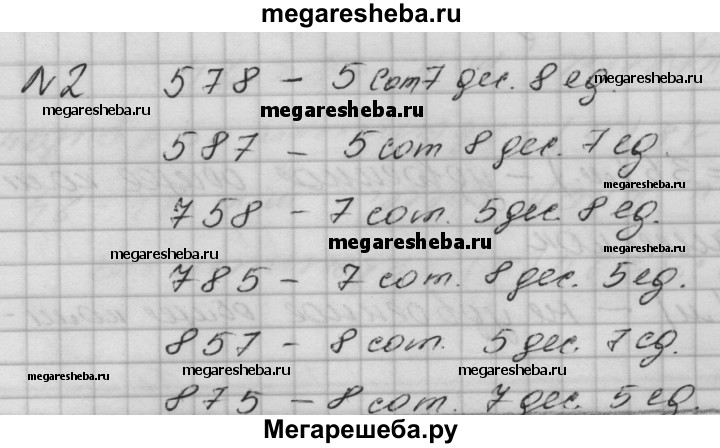 megaresheba.ru
N2 578 - 5 сот 7 дес. 8 ед.
megaresheba.ru
megaresheba.ru
megaresheba.ru
587 - 5 сот 8 дес. 7 ед.
megaresheba.ru
758 - 7 сот. 5 дес. 8 ед.
megaresheba.ru
megaresheba.ru
785 - 7 сот. 8 дес. 5 ед.
857 - 8 сот. 5 дес. 7 ед.
megaresheba.ru
megaresheba.ru
megaresheba.ru
875 - 8 сот. 7 дес. 5 ед.
Мегарешеба.ру